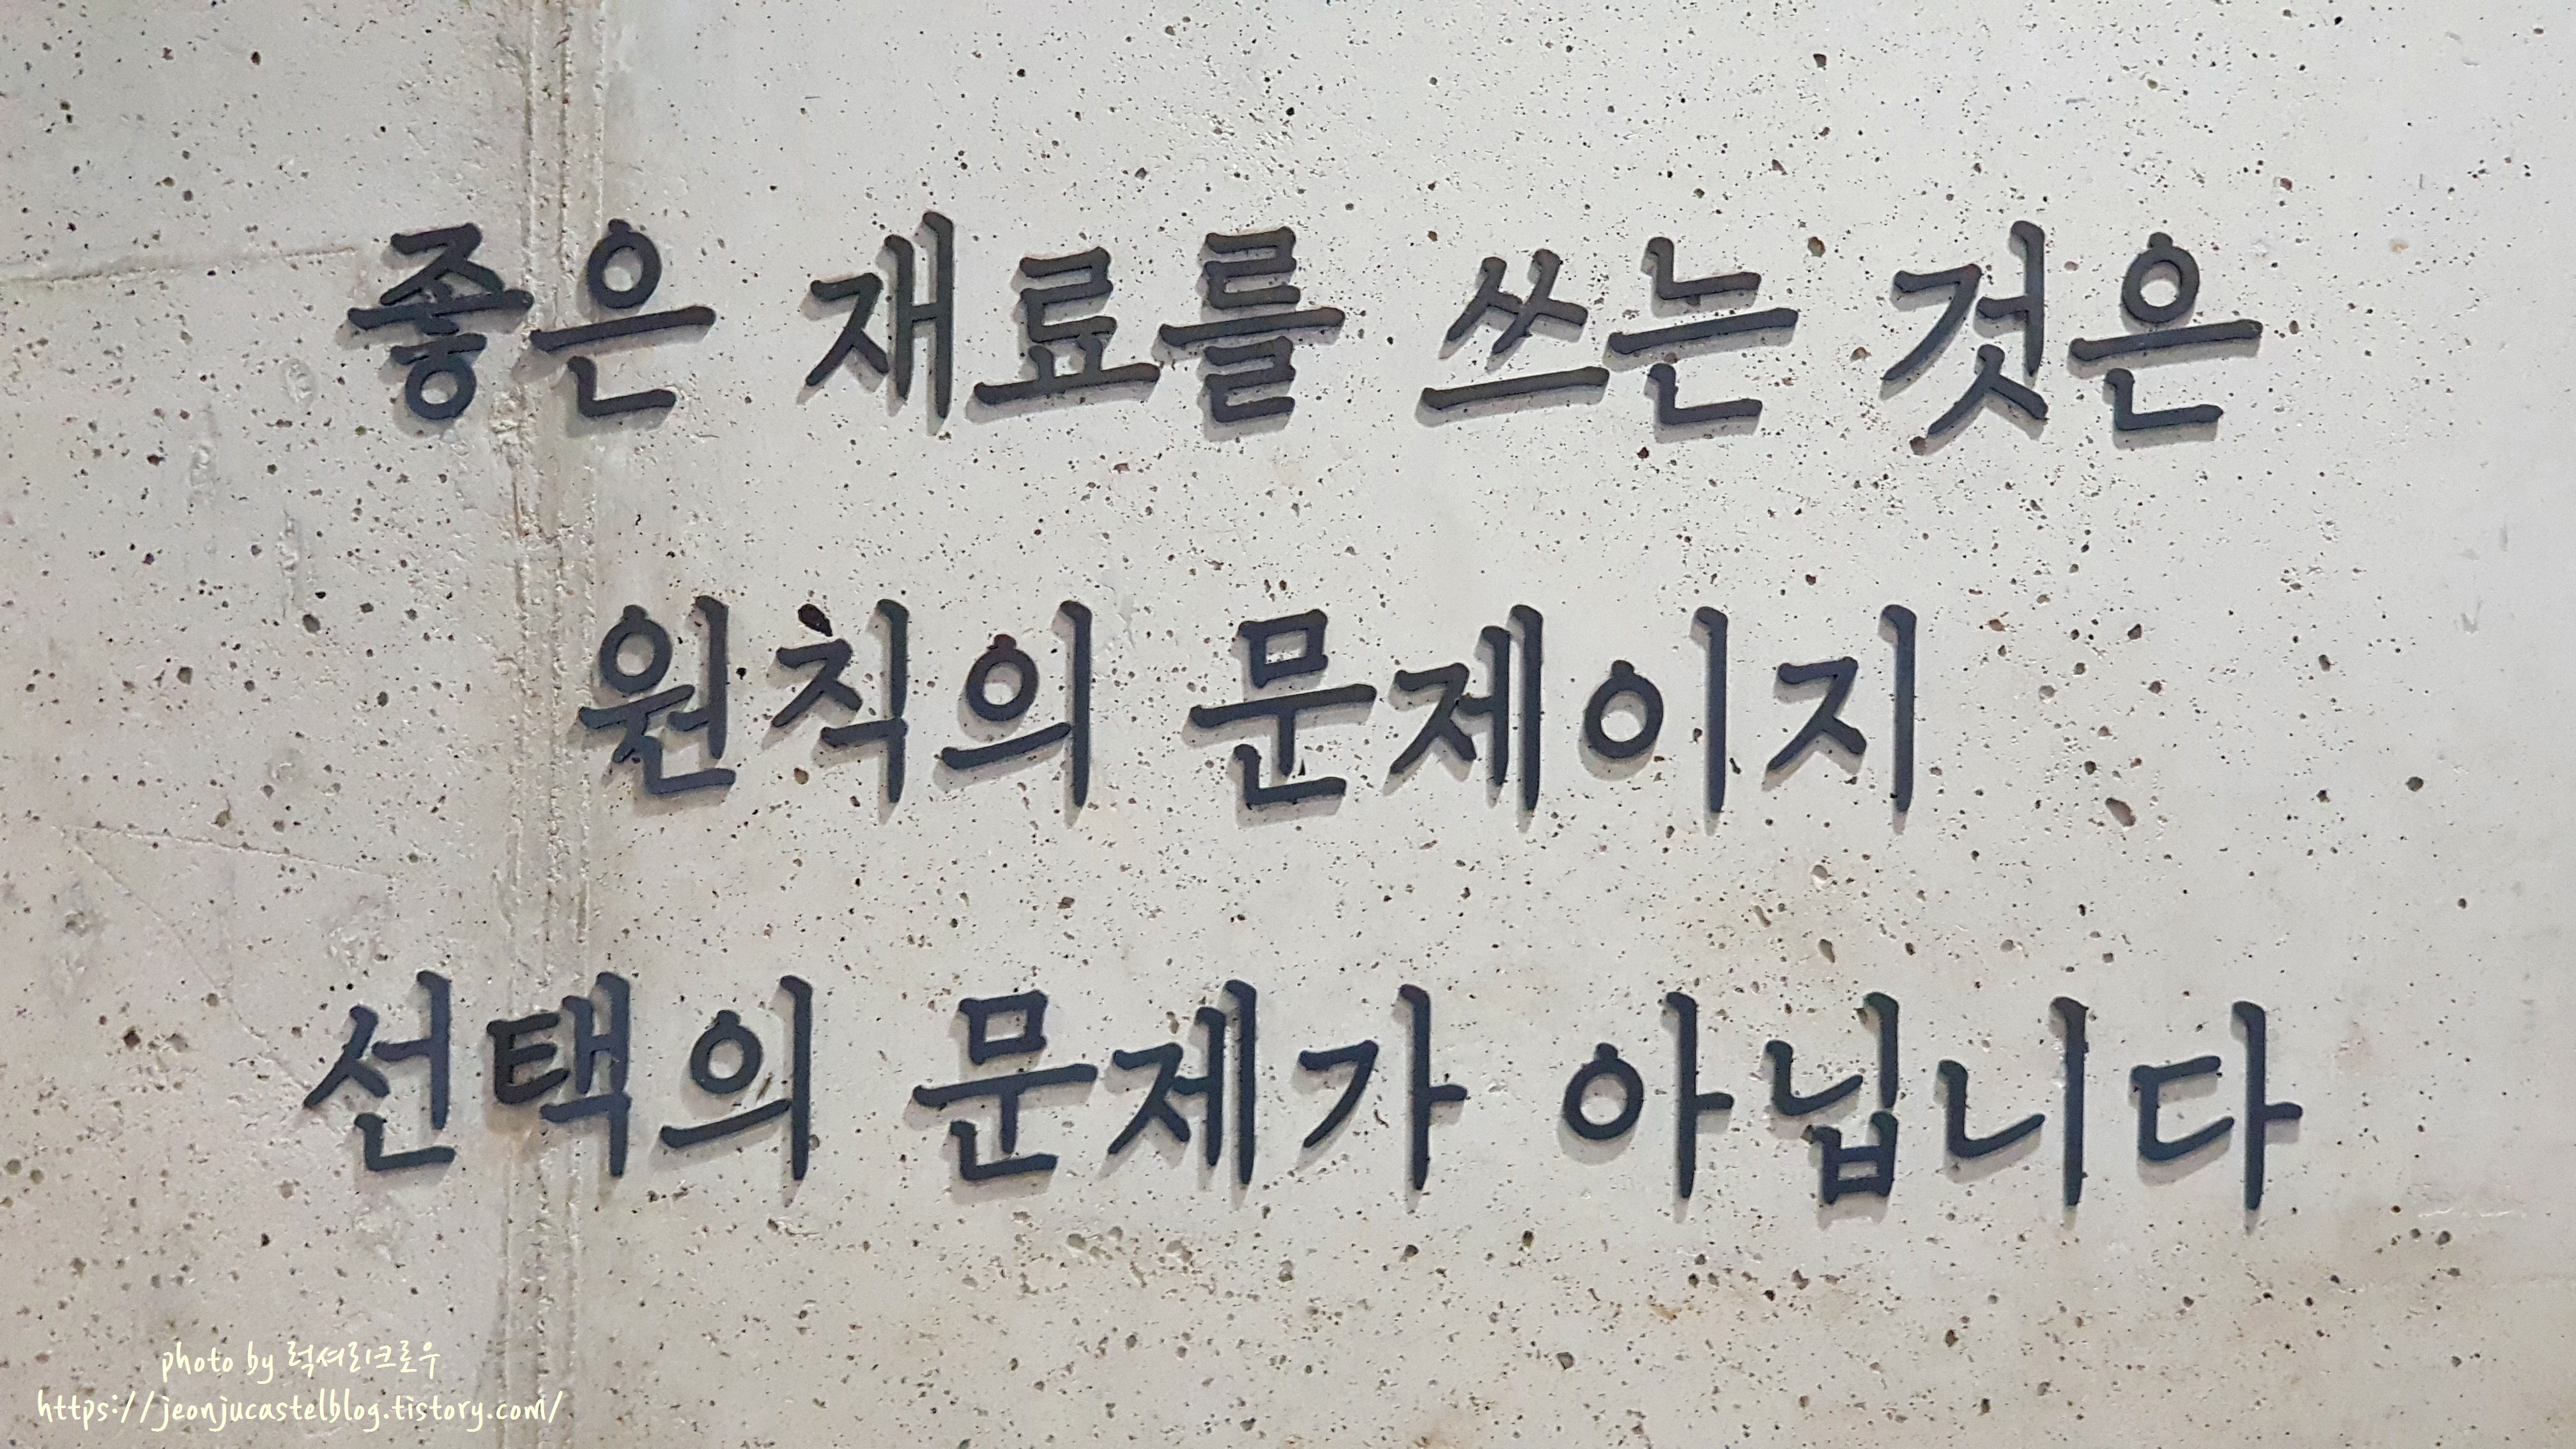 좋은 재료를 쓰는 것은
원칙의 문제이지
선택의 문제가 아닙니다
photo by 럭셔리크로우
https://jeonjucastelblog.tistory.com/